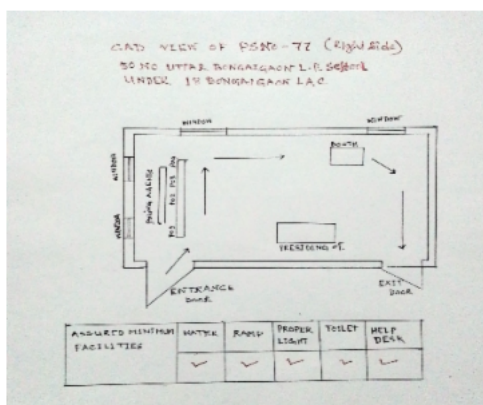 CAD VIEW OF PSNO-77 (Right Side)
50 NO UTTAR BONGAIGAON L.P. School
UNDER 18 BONGAIGAON LAC
WINDOW
WINDOW
BOOTH
WINDOW
POLING AGENTS
PO2
PO3
WINDOW
PRESIDING OF.
ENTRANCE
DOOR
EXIT
DOOR
ASSURED MINIMUM
FACILITIES
WATER
RAMP
PROPER
LIGHT
TOILET
HELP
DESK